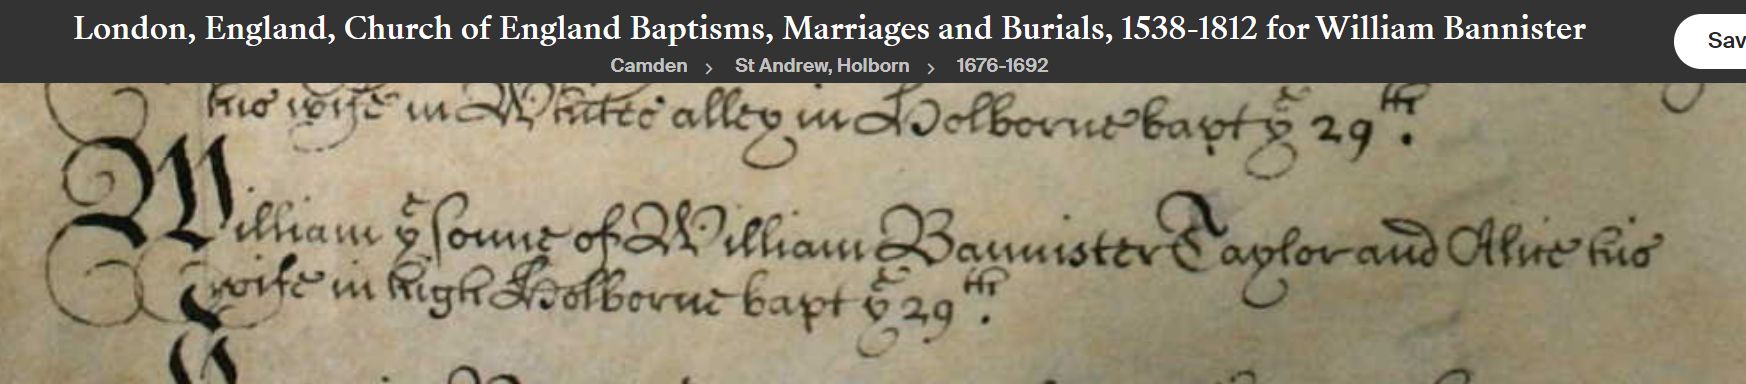 London, England, Church of England Baptisms, Marriages and Burials, 1538-1812 for William Bannister
Camden > St Andrew, Holborn > 1676-1692
Sav
his wife in Whites alley in Holborne bapt yͤ 29ᵗʰ.
William yͤ sonne of William Bannister Taylor and Alice his
wife in high Holborne bapt yͤ 29ᵗʰ.